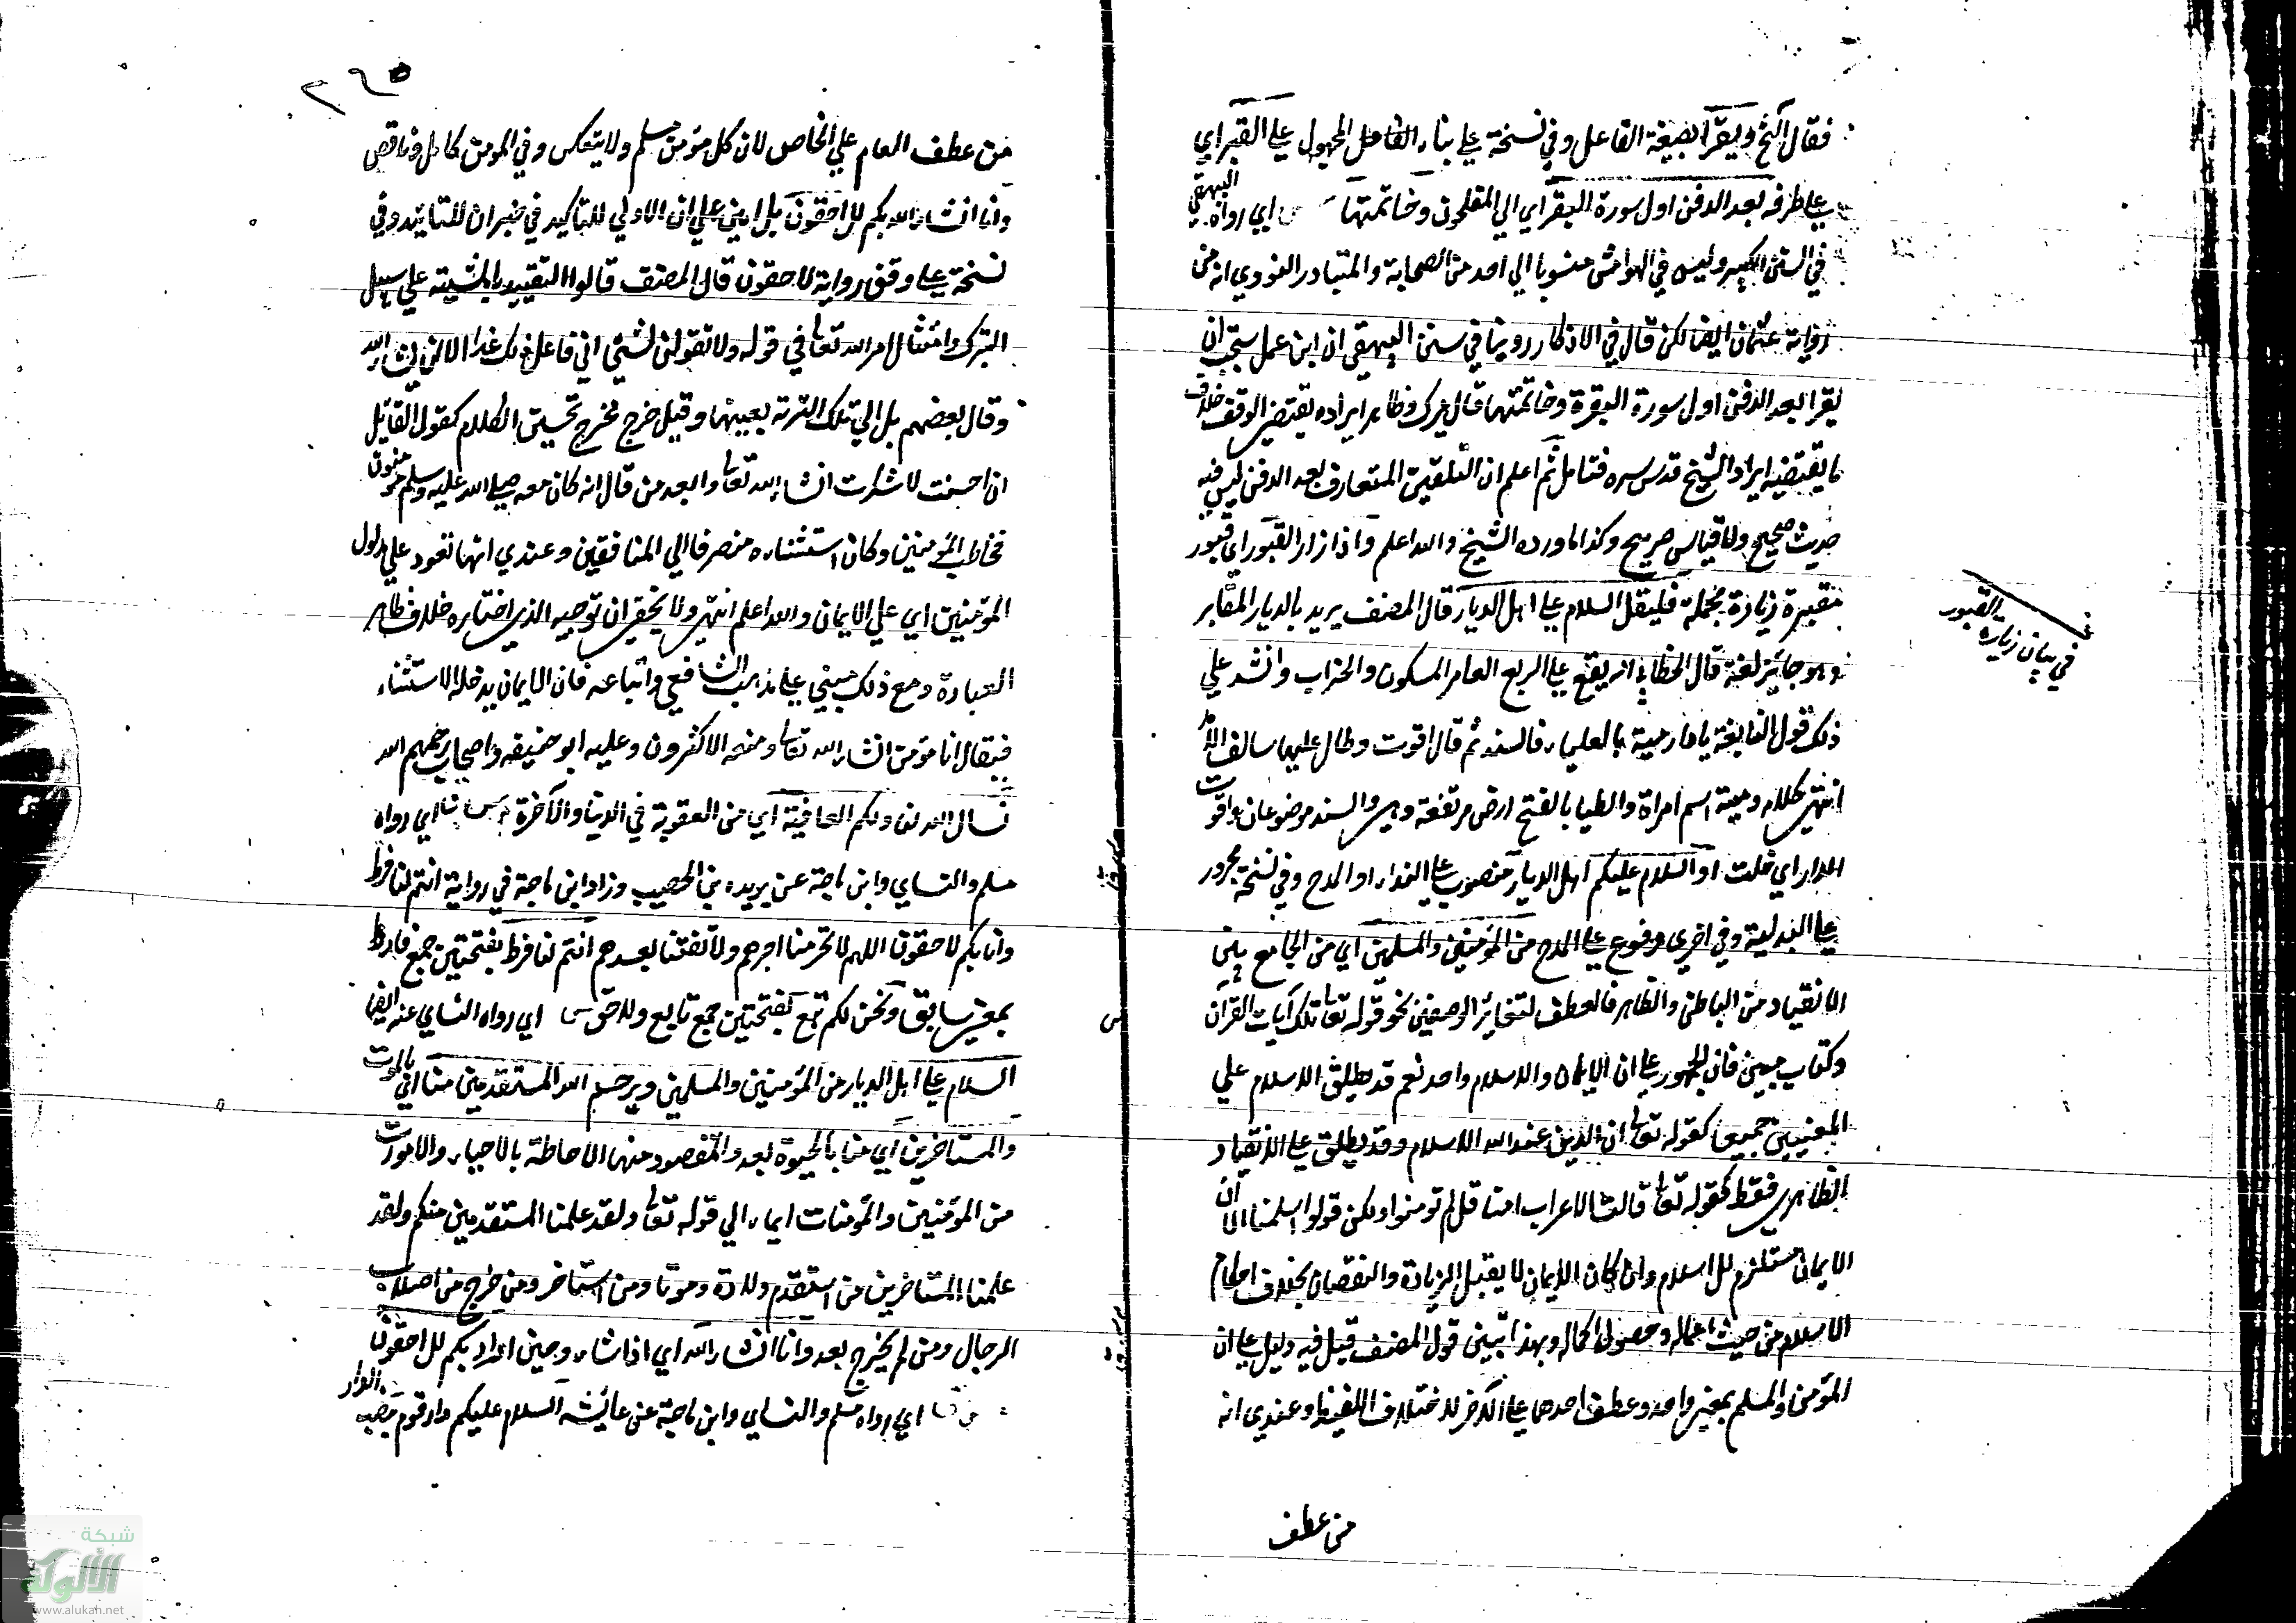 فقال الخ ويقرأ بصيغة الفاعل وفي نسخة علي بناء الفاعل المجهول علي القبر اي
علي طرفه بعد الدفن اول سورة البقر اي الي المفلحون وخاتمتها اي رواه البيهقي
في السنن الكبير وليس في الهوامش منسوبا الي احد من الصحابة والمتبادر النووي انه من
رواية عثمان ايضا لكن قال في الاذكار روينا في سنن البيهقي ان ابن عمر استحب ان
يقرا بعد الدفن اول سورة البقرة وخاتمتها قال ميرك وظاهر ايراده يقتضي الوقف خلاف
ما يقتضيه ايراد الشيخ قدس سره فتامل ثم اعلم ان التلقين المتعارف بعد الدفن ليس فيه
حديث صحيح ولا قياس صريح وكذا ما ورده الشيخ والله اعلم واذا زار القبور اي قبور
مقبرة زيارة مجملة فليقل السلام علي اهل الديار قال المصنف يريد بالديار المقابر
وهو جائز لغة قال الخطابي انه يقع علي الربع العامر المسكون والخراب وانشد علي
ذلك قول النابغة يا دار مية بالعلياء فالسند ثم قال اقوت وطال عليها سالف الامد
انتهي كلامه ومية اسم امراة والعليا بالفتح ارض مرتفعة وهي والسند موضوعان واقوت
الدار اي خلت او السلام عليكم اهل الديار منصوب علي النداء او المدح وفي نسخة مجرور
علي البدلية وفي اخري مرفوع علي المدح من المؤمنين والمسلمين اي من الجامع بين
الانقياد من الباطن والظاهر فالعطف لتغاير الوصفين نحو قوله تعالي تلك آيات القرآن
وكتاب مبين فان الجمهور علي ان الايمان والاسلام واحد نعم قد يطلق الاسلام علي
المعنيين جميعا كقوله تعالي ان الدين عند الله الاسلام وقد يطلق علي الانقياد
الظاهري فقط كقوله تعالي قالت الاعراب امنا قل لم تومنوا ولكن قولوا اسلمنا الا ان
الايمان مستلزم للاسلام وان كان الايمان لا يقبل الزيادة والنقصان بخلاف احكام
الاسلام من حيث اعماله وحصول اكماله وبهذا تبين قول المصنف قيل فيه دليل علي ان
المؤمن والمسلم بمعني واحد وعطف احدهما علي الآخر لاختلاف اللفظ وعندي انه
من عطف
في بيان زيارة القبور
٢٦٥
من عطف العام علي الخاص لان كل مؤمن مسلم ولا ينعكس وفي المومن كامل وناقص
وانا ان شاء الله بكم للاحقون بلامين علي ان الاولي للتاكيد في خبر ان للتاييد وفي
نسخة علي وفق رواية لاحقون قال المصنف قالوا التقييد بالمشيته علي سبيل
التبرك وامتثال امر الله تعالي في قوله ولا تقولن لشيئ اني فاعل ذلك غدا الا ان يشاء الله
وقال بعضهم بل الي تلك التربة بعينها وقيل خرج مخرج تحسين الكلام كقول القائل
ان احسنت لا شكرت ان شاء الله تعالي وابعد من قال انه كان معه صلي الله عليه وسلم مؤمنون
فخاطب المؤمنين وكان استثناءه منصرفا الي المنافقين وعندي انها تعود علي مدلول
المؤمنين اي علي الايمان والله اعلم انتهي ولا يخفي ان توجيه الذي اختاره خلاف ظاهر
العبارة ومع ذلك مبني علي مذهب الشافعي واتباعه فان الايمان يدخله الاستثناء
فيقال انا مؤمن ان شاء الله تعالي ومنعه الاكثرون وعليه ابو حنيفه واصحابه رحمهم الله
نسال الله لنا ولكم العافية اي من العقوبة في الدنيا والآخرة م س ق اي رواه
مسلم والنساي وابن ماجة عن بريده بن الحصيب وزاد ابن ماجة في رواية انتم لنا فرط
وانا بكم لاحقون اللهم لا تحرمنا اجرهم ولا تفتنا بعدهم انتم لنا فرط بفتحتين جمع فارط
بمعني سابق ونحن لكم تبع بفتحتين جمع تابع وللاحق س اي رواه النساي عنه ايضا
السلام علي اهل الديار من المؤمنين والمسلمين ويرحم الله المستقدمين منا اي بالموت
والمستاخرين اي منا بالحيوة بعد والمقصود منها الاحاطة بالاحياء والاموات
من المؤمنين والمؤمنات ايماء الي قوله تعالي ولقد علمنا المستقدمين منكم ولقد
علمنا المستاخرين من استقدم ولادة وموتا ومن استاخر ومن خرج من اصلاب
الرجال ومن لم يخرج بعد وانا ان شاء الله اي اذا شاء وحين اراد بكم للاحقون
م س ق اي رواه مسلم والنساي وابن ماجة عن عائشه السلام عليكم دار قوم بنصب الدار
شبكة
الألوكة
www.alukah.net